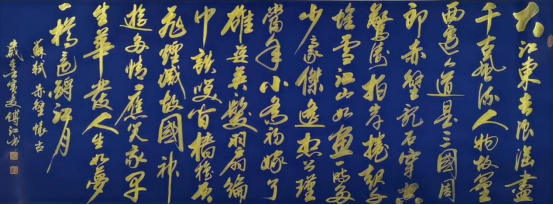 大江東去浪淘盡
千古風流人物故壘
西邊人道是三國周
郎赤壁亂石穿空
驚濤拍岸捲起
堆雪江山如畫一時多
少豪傑遙想公瑾
當年小喬初嫁了
雄姿英發羽扇綸
巾談笑間檣櫓灰
飛煙滅故國神
遊多情應笑我早
生華發人生如夢
一樽還酹江月
蘇軾赤壁懷古